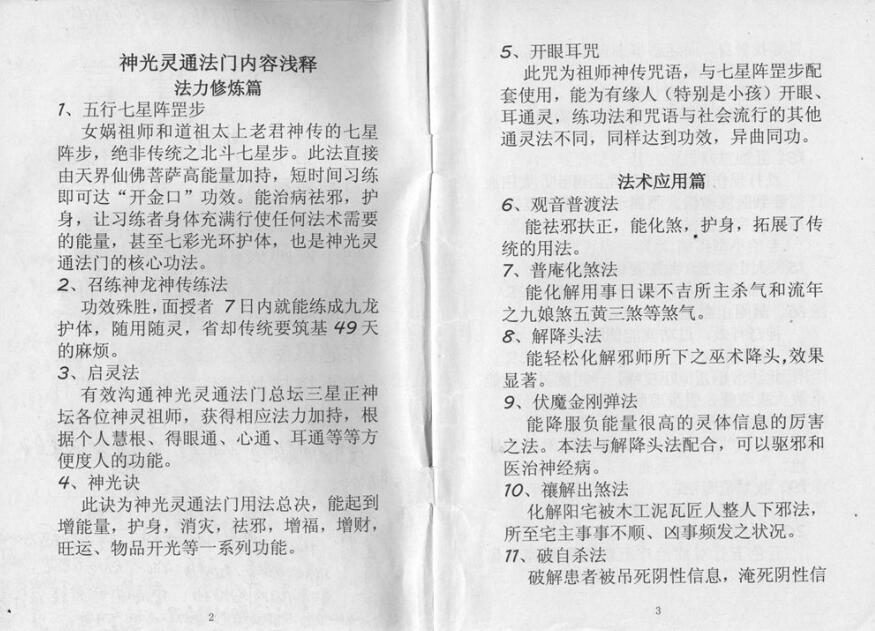 神光灵通法门内容浅释
法力修炼篇
1、五行七星阵罡步
女娲祖师和道祖太上老君神传的七星
阵步，绝非传统之北斗七星步。此法直接
由天界仙佛菩萨高能量加持，短时间习练
即可达“开金口”功效。能治病祛邪，护
身，让习练者身体充满行使任何法术需要
的能量，甚至七彩光环护体，也是神光灵
通法门的核心功法。
2、召练神龙神传练法
功效殊胜，面授者 7日内就能练成九龙
护体，随用随灵，省却传统要筑基 49 天
的麻烦。
3、启灵法
有效沟通神光灵通法门总坛三星正神
坛各位神灵祖师，获得相应法力加持，根
据个人慧根、得眼通、心通、耳通等等方
便度人的功能。
4、神光诀
此诀为神光灵通法门用法总决，能起到
增能量，护身，消灾，祛邪，增福，增财，
旺运、物品开光等一系列功能。
2
5、开眼耳咒
此咒为祖师神传咒语，与七星阵罡步配
套使用，能为有缘人（特别是小孩）开眼、
耳通灵，练功法和咒语与社会流行的其他
通灵法不同，同样达到功效，异曲同功。
法术应用篇
6、观音普渡法
能祛邪扶正，能化煞，护身，拓展了传
统的用法。
7、普庵化煞法
能化解用事日课不吉所主杀气和流年
之九娘煞五黄三煞等煞气。
8、解降头法
能轻松化解邪师所下之巫术降头,效果
显著。
9、伏魔金刚弹法
能降服负能量很高的灵体信息的厉害
之法。本法与解降头法配合，可以驱邪和
医治神经病。
10、禳解出煞法
化解阳宅被木工泥瓦匠人整人下邪法，
所至宅主事事不顺、凶事频发之状况。
11、破自杀法
破解患者被吊死阴性信息，淹死阴性信
3